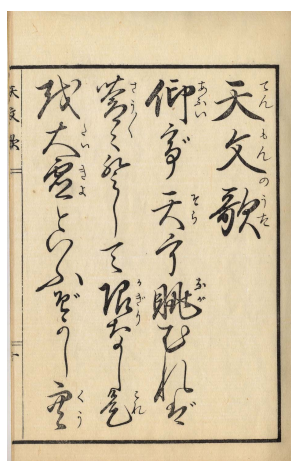 てんもんのうた
天文歌
あふい そら なが
仰で天宇眺むれば
さう〱 かぎり これ
蒼々として限なし是
たいきよ くう
を大虚といふぞかし空
天文歌